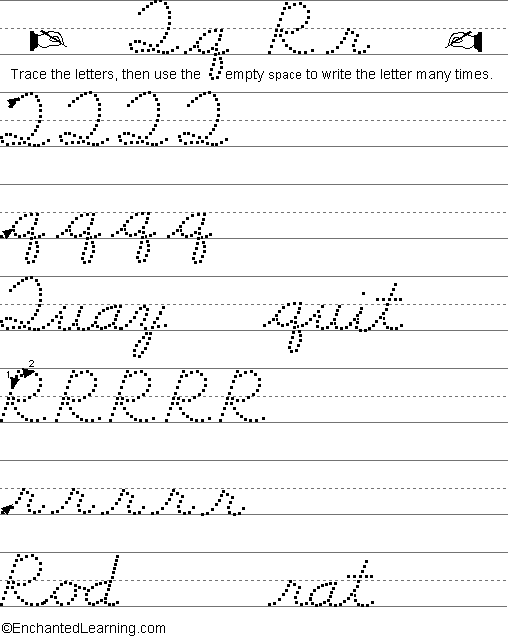 Q q R r
Trace the letters, then use the empty space to write the letter many times.
Q Q Q Q
q q q q
Quay quit
1 2
R R R R R
r r r r r
Rod rat
©EnchantedLearning.com